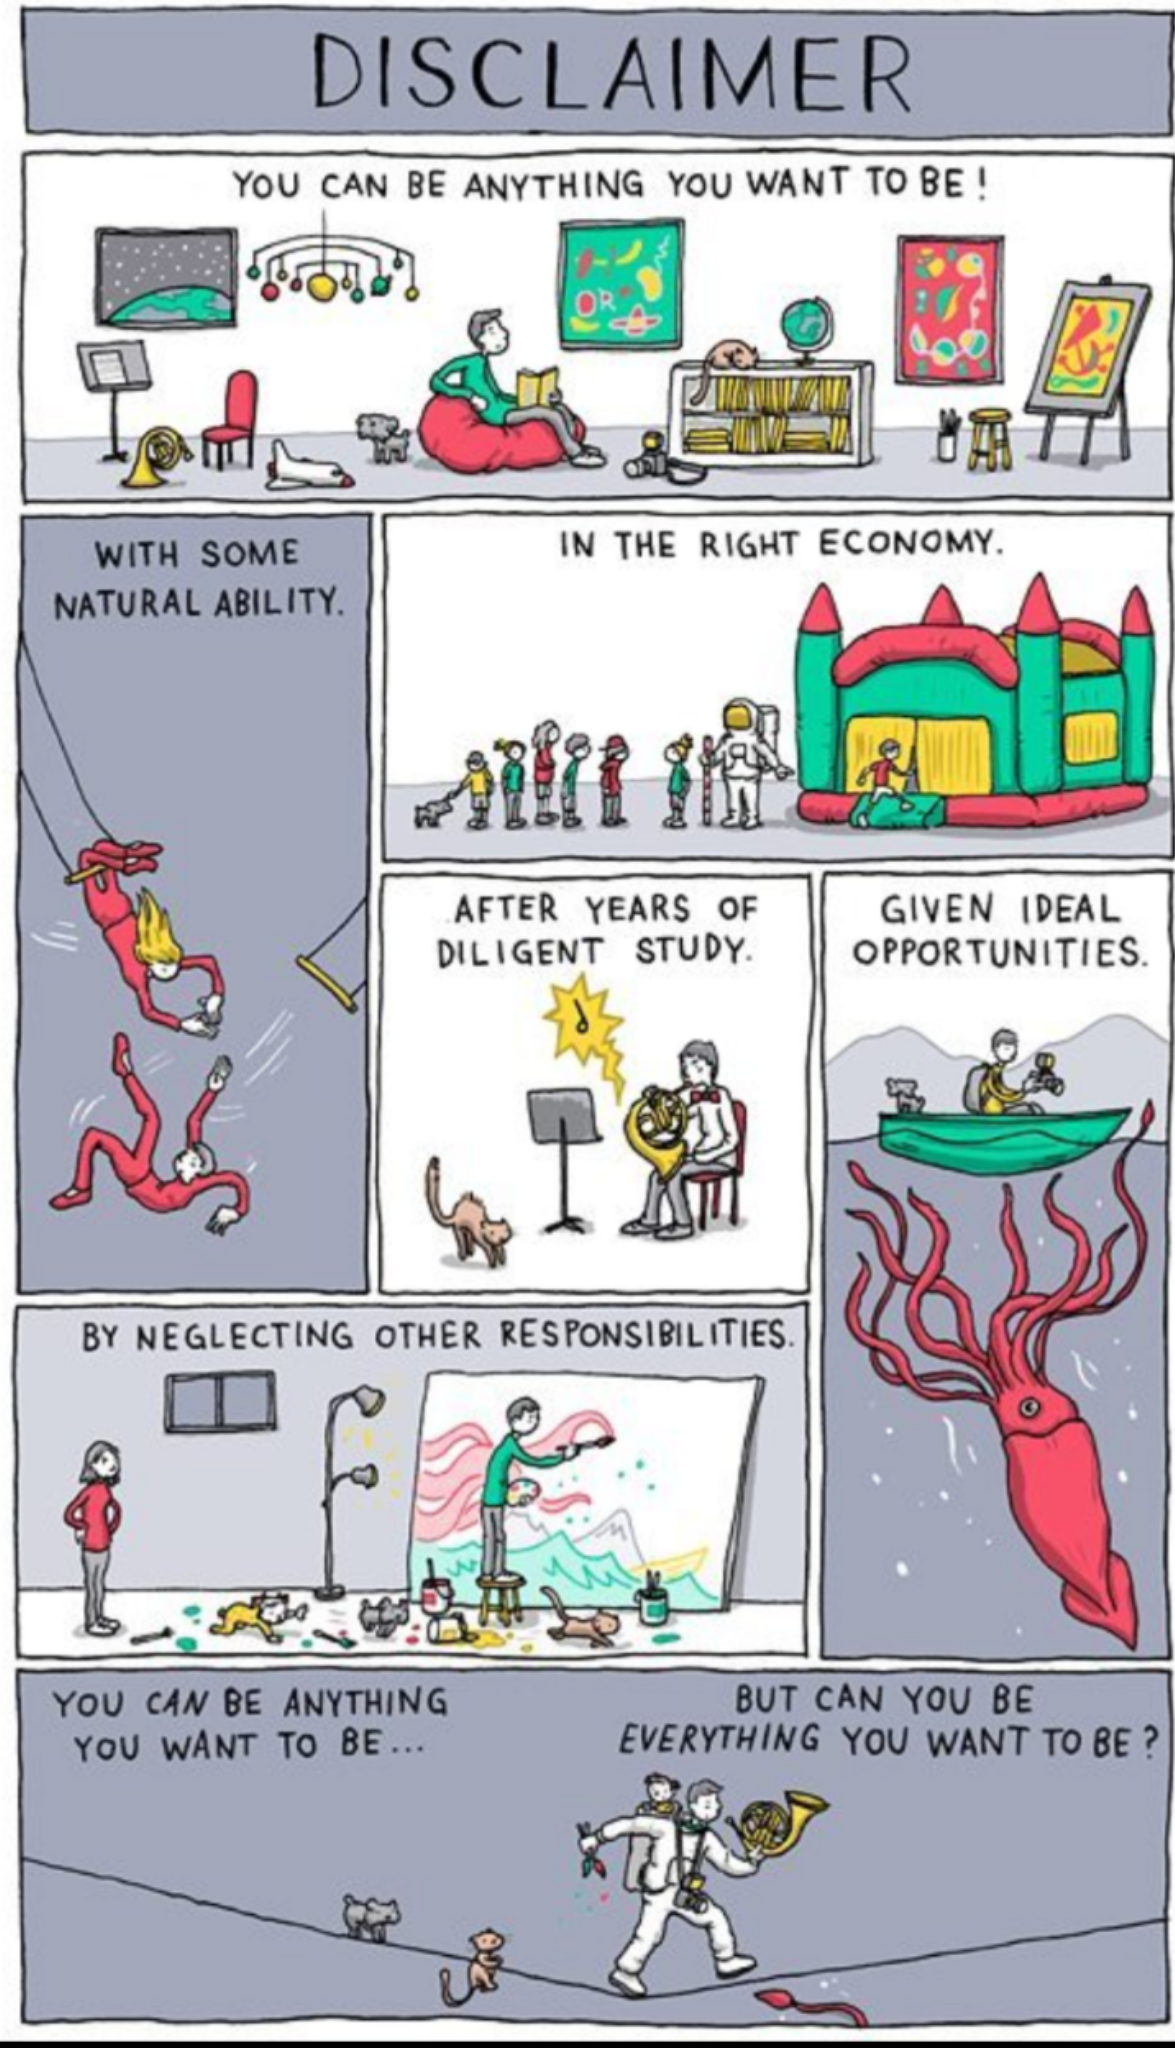 DISCLAIMER
YOU CAN BE ANYTHING YOU WANT TO BE!
OR
WITH SOME
NATURAL ABILITY.
IN THE RIGHT ECONOMY.
AFTER YEARS OF
DILIGENT STUDY.
GIVEN IDEAL
OPPORTUNITIES.
BY NEGLECTING OTHER RESPONSIBILITIES.
YOU CAN BE ANYTHING
YOU WANT TO BE...
BUT CAN YOU BE
EVERYTHING YOU WANT TO BE?